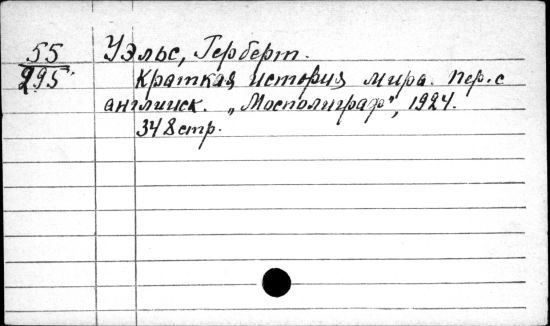 55
295
Уэльс, Герберт.
Краткая история мира. Пер. с
английск. „Мосполиграф", 1924.
348 стр.